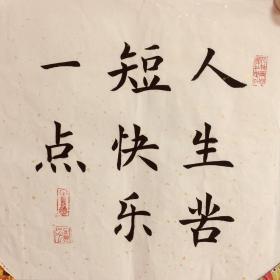 人生苦
短快乐
一点